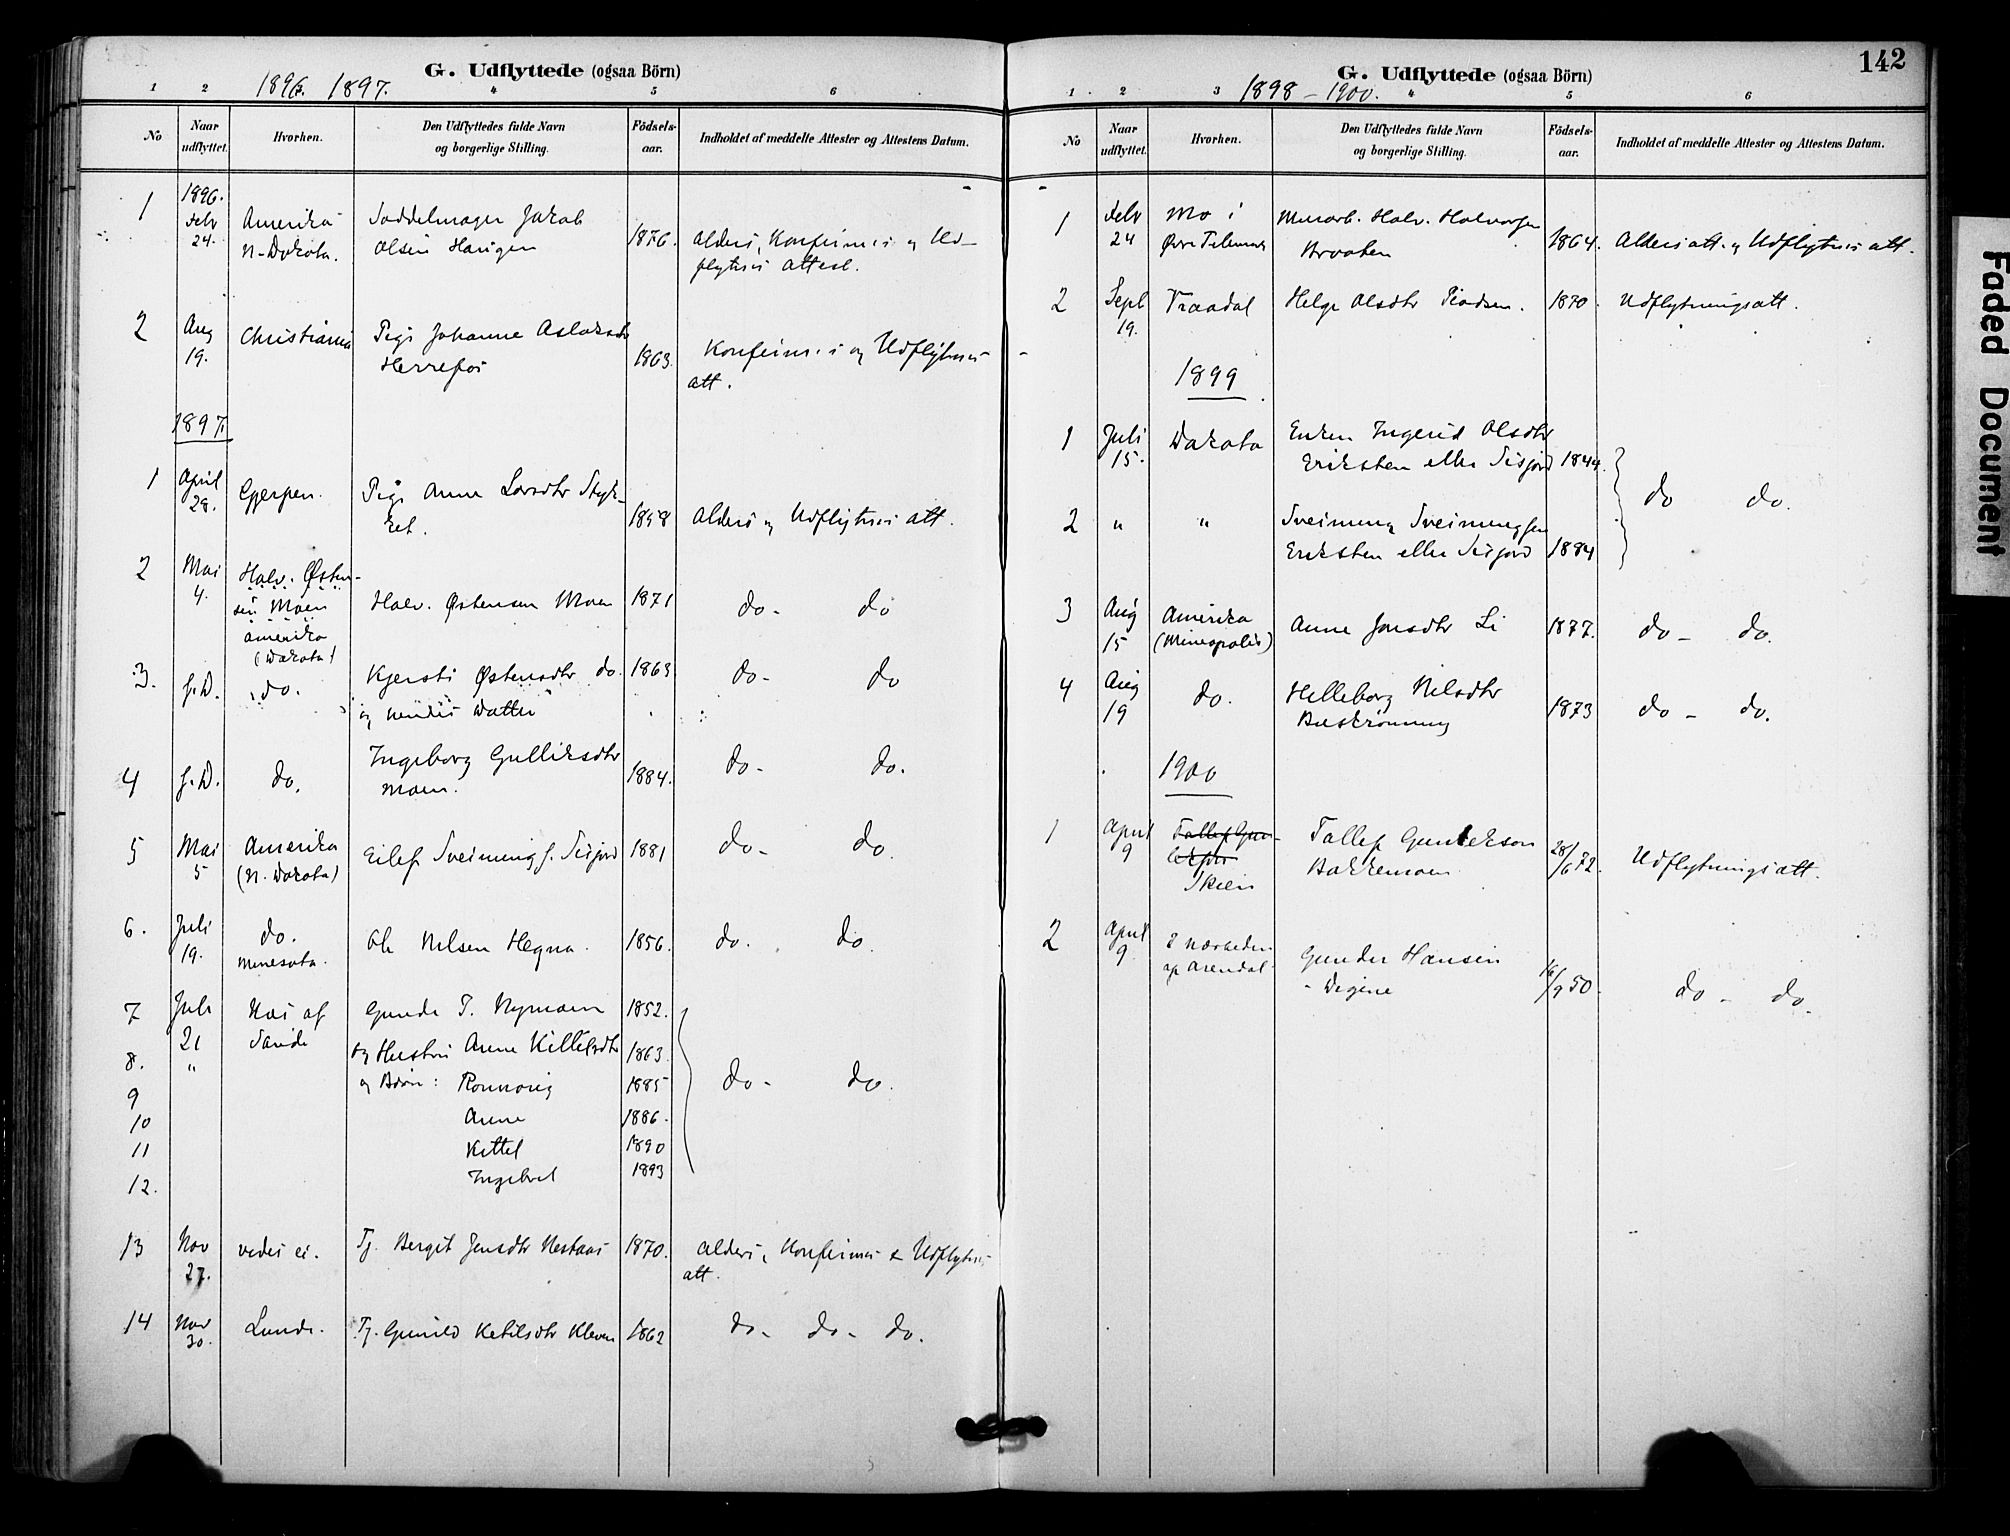 G. Udflyttede (ogsaa Börn)
1896. 1897.
1 2 4 5 6
No
Naar udflyttet.
Hvorhen.
Den Udflyttedes fulde Navn og borgerlige Stilling.
Födsels-aar.
Indholdet af meddelte Attester og Attestens Datum.
1896.
1 Febr 24. Amerika N-Dakota. Saddelmager Jakob Olsen Haugen 1876. Alders, Konfirm.s og Ud-
flytnis attest.
2 Aug 19. Christiania Pige Johanne Aslaksdtr Herrefos 1863. Konfirm.s og Udflytnis att.
1897.
1 April 28. Gjerpen. Pige Anne Larsdtr 1858 Alders og Udflytnis att.
2 Mai 4. Halv. Østen-
sen Moen
Amerika
(Dakota)
Halv. Østensen Moen 1871 do - do
3. s. D. do. Kjersti Østensdtr do. 1863 do - do
og hendes Datter
4 s. D. do. Ingeborg Gulliksdtr Moen. 1884. do - do.
5 Mai 5 Amerika (N. Dakota) Eilef Sveinung s. Sisjord 1881 do - do.
6. Juli 19. do. Minesota. Ole Nilsen Hegna. 1856. do. do.
7 Juli 21 Næs af Sande Gunde T. Nymoen 1852.
8. " og Hustru Anne Kittelsdtr 1863.
9 og Børn: Rønnoug 1885 do - do.
10 Anne 1886.
11 Kittel 1890
12. Ingebret 1893
13 Nov 27. vedes ei. Tj. Bergit Jensdtr Nestaas 1870. Alders, Konfirms & Udflytnis att.
14 Nov 30. Lunde. Tj. Gunild Ketilsdtr Kleven 1862 do - do - do.
142
G. Udflyttede (ogsaa Börn)
1898 - 1900.
1 2 3 4 5 6
No
Naar udflyttet.
Hvorhen.
Den Udflyttedes fulde Navn og borgerlige Stilling.
Födsels-aar.
Indholdet af meddelte Attester og Attestens Datum.
1 Febr 24 Mo i Øvre Telemark Murarb. Halv. Halvorsen Braaten 1864. Alders att. og Udflytnis att.
2 Sept 19. Vraadal Helge Olsdtr 1870. Udflytningsatt.
1899
1 Juli 15. Dakota Enken Ingerid Olsdtr
Eriksten eller Sisjord 1844. do do.
2 " " Sveinung Sveinungsen
Eriksten eller Sisjord 1884
3 Aug 15 Amerika (Mineapolis) Anne Jonsdtr Li 1877. do - do.
4 Aug 19 do. Helleborg Nilsdtr 1873 do - do.
1900
1 April 9 Skien Tallef Gunlekson Bakkemoen 28/6 72. Udflytningsatt.
2 April 9 I Nærheden af Arendal. Gunder Hansen 16/9 50. do - do.
Faded Document